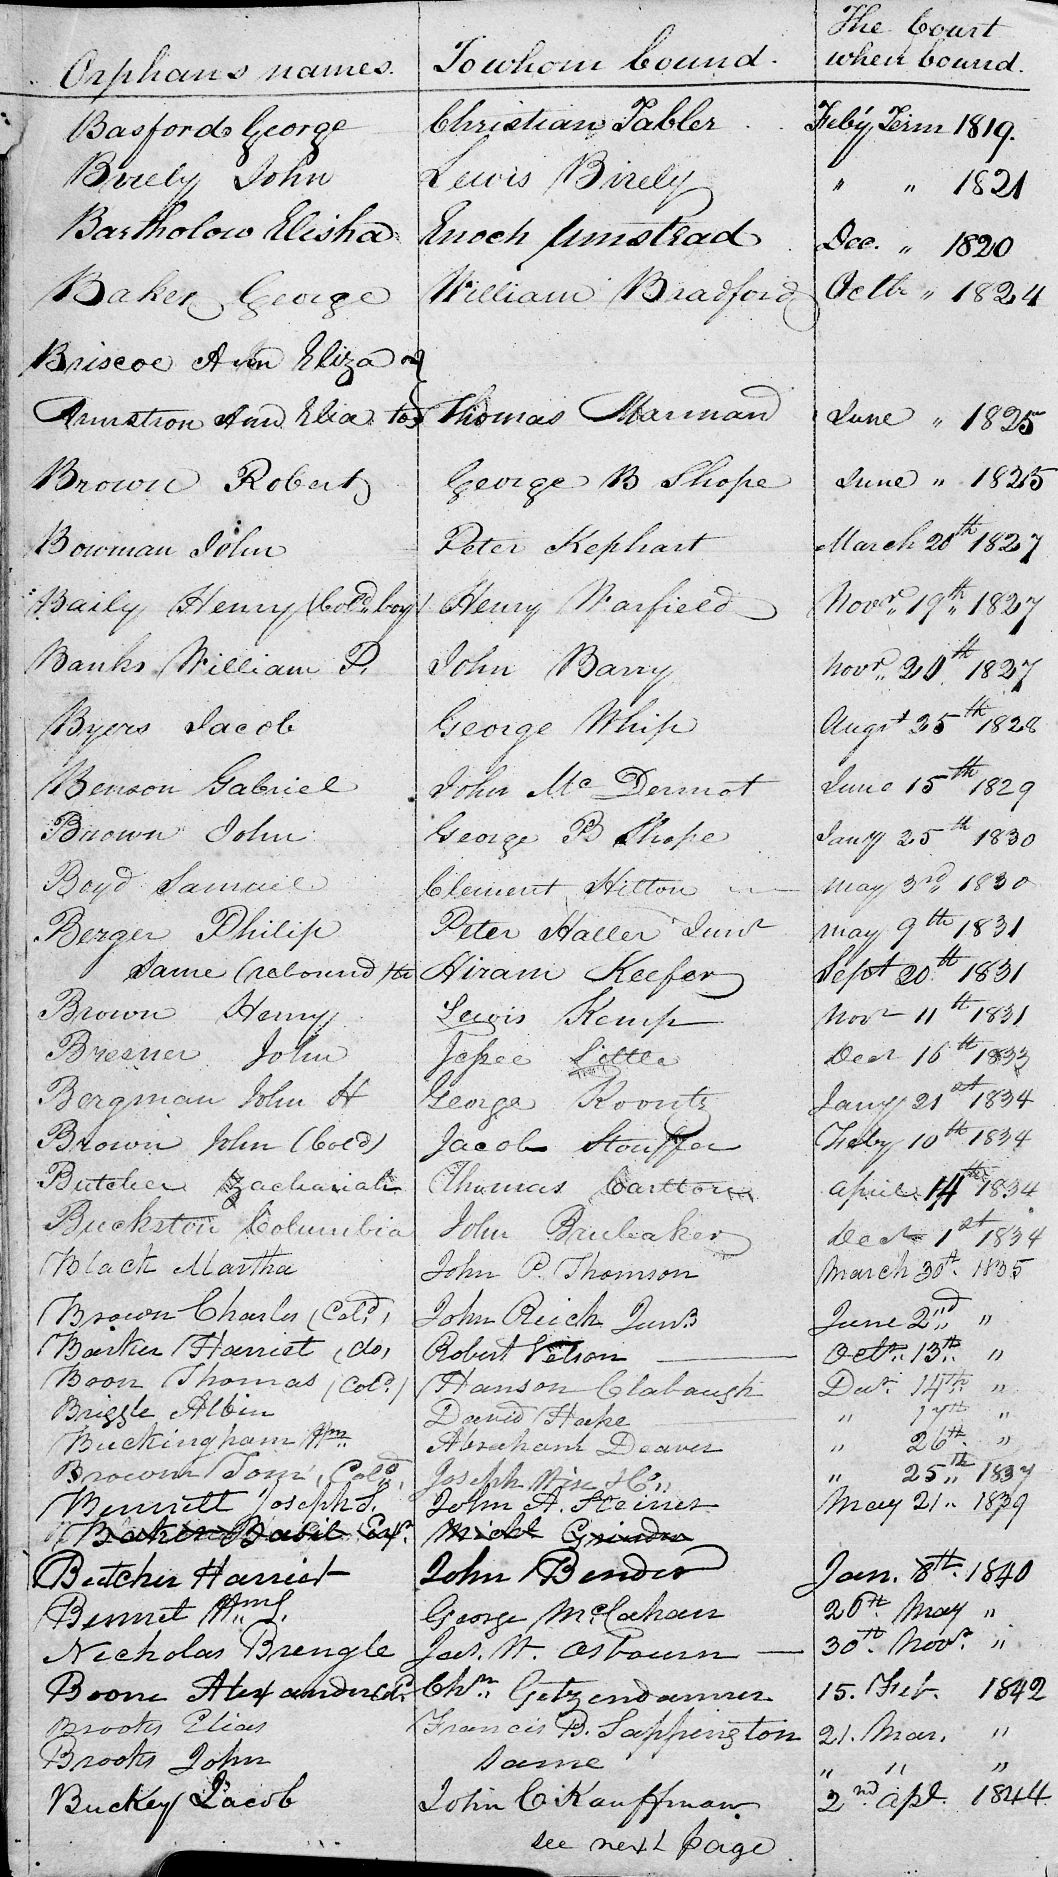 Orphans names. To whom bound. The Court when bound.
Basford George Christian Tabler Feby Term 1819.
Birely John Lewis Birely " " 1821
Bartholow Elisha Enoch Umstead Dec. " 1820
Baker George William Bradford Octb " 1824
Briscoe Ann Eliza or
Armstron Ann Eliza to Thomas Marman June " 1825
Brown Robert George B Shope June " 1825
Bowman John Peter Kephart March 20th 1827
Baily Henry (Cold boy) Henry Warfield Novr. 19th 1827
Banks William P. John Barry Novr. 20th 1827
Byers Jacob George Whip Augst 25th 1828
Benson Gabriel John McDermot June 15th 1829
Brown John George B Shope Jany 25th 1830
Boyd Samuel Clement Hilton May 3rd 1830
Berger Philip Peter Haller Junr May 9th 1831
Same (rebound) to Hiram Keefer Sept 20th 1831
Brown Henry Lewis Kemp Novr 11th 1831
Bresner John Jesse Little Decr 16th 1833
Bergman John H George Koontz Jany 21st 1834
Brown John (Cold) Jacob Stouffer Feby 10th 1834
Butcher Zachariah Thomas Carlton April 14th 1834
Buckston Columbia John Brubaker Decr 1st 1834
Black Martha John P. Thomson March 30th 1835
Brown Charles (Cold) John Reich Junr June 2nd "
Barker Harriet (do) Robert Nelson Octr. 13th "
Boon Thomas (Cold) Hanson Clabaugh Decr. 14th "
Briggle Albin David Hape " 17th "
Buckingham Wm Abraham Deaver " 26th "
Brown Tom (Cold) Joseph Wise & Co " 25th 1837
Bennett Joseph S. John A. Steiner May 21 1839
Baker Basil Michl Grinder
Butcher Harriet John Bender Jan. 8th 1840
Bennet Wm S. George McCahan 26th May "
Nicholas Brengle Jas. W. Osbourn 30th Novr. "
Boone Alexander Chn. Getzendanner 15. Feb. 1842
Brooks Elias Francis B. Sappington 21. Mar. "
Brooks John same " " "
Buckey Jacob John C Kauffman 2nd Apl. 1844
see next page